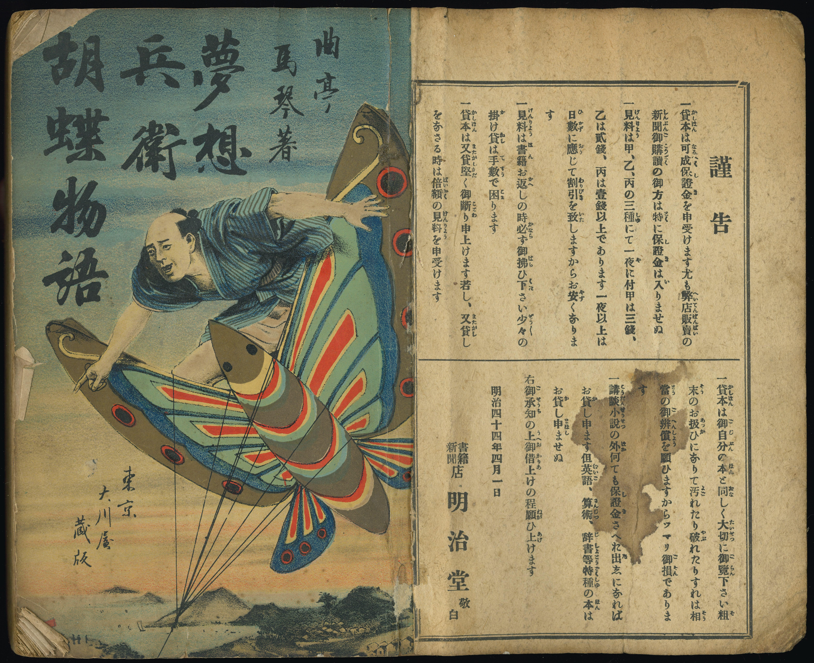 曲亭
馬琴著
夢想
兵衛
胡蝶物語
東京
大川屋
蔵版
謹告
一貸本は可成保證金を申受けます尤も弊店販賣の
新聞御購讀の御方は特に保證金は入りませぬ
一見料は甲、乙、丙の三種にて一夜に付甲は三錢、
乙は貳錢、丙は壹錢以上であります一夜以上は
日數に應じて割引を致しますからお安くなりま
す
一見料は書籍お返しの時必ず御拂ひ下さい少々の
掛け貸は手數で困ります
一貸本は又貸堅く御斷り申上げます若し、又貸し
をなさる時は倍額の見料を申受けます
一貸本は御自分の本と同しく大切に御覽下さい粗
末のお扱ひになりて汚れたり破れたりすれは相
當の御辨償を願ひますからツマリ御損でありま
す
講談小説の外何ても保證金さへお出しになれば
お貸し申ます但英語、算術、辭書等特種の本は
お貸し申ませぬ
右御承知の上御借上けの程願ひ上けます
明治四十四年四月一日
書籍
新聞店
明治堂
敬白